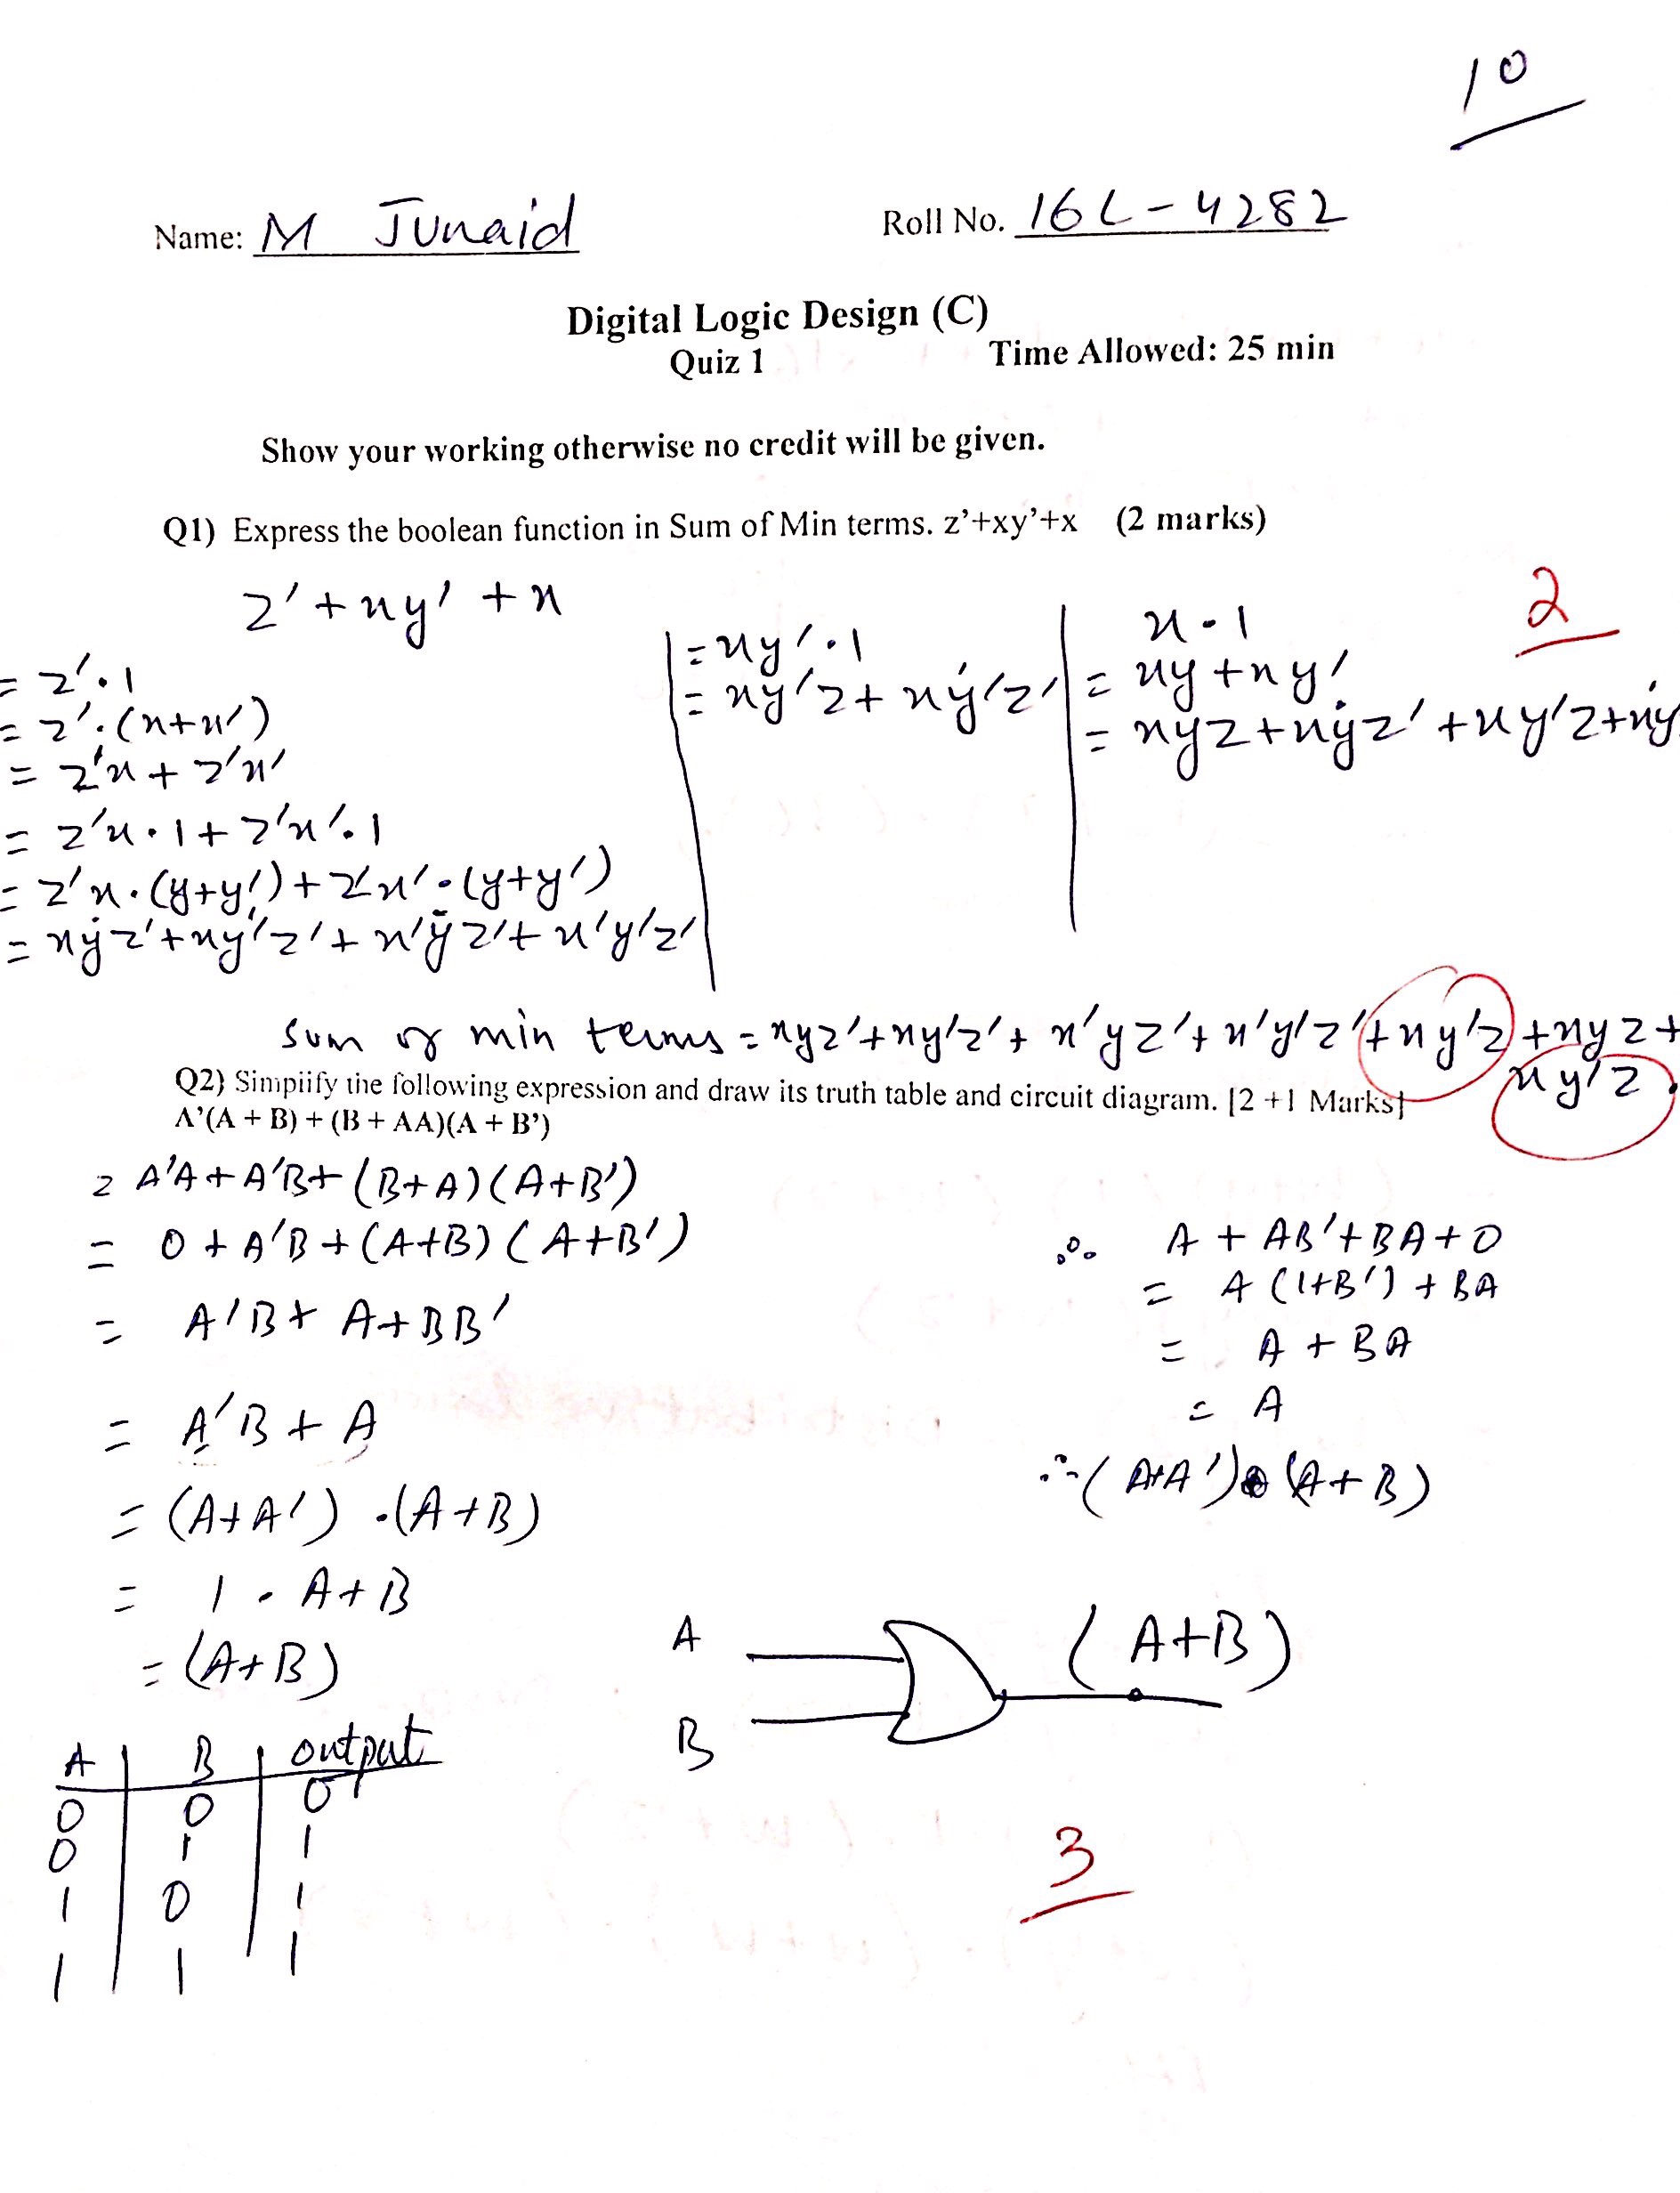 10
Name: M Junaid Roll No. 16L-4282
Digital Logic Design (C)
Quiz 1 Time Allowed: 25 min
Show your working otherwise no credit will be given.
Q1) Express the boolean function in Sum of Min terms. z'+xy'+x (2 marks)
z' + xy' + x
2
= z'.1
= z'.(x+x')
= z'x + z'x'
= z'x.1 + z'x'.1
= z'x.(y+y') + z'x'.(y+y')
= xyz' + xy'z' + x'yz' + x'y'z'
= xy'.1
= xy'z + xy'z'
x.1
= xy + xy'
= xyz + xyz' + xy'z + xy
sum of min terms = xyz' + xy'z' + x'yz' + x'y'z' + xy'z + xyz +
xy'z.
Q2) Simplify the following expression and draw its truth table and circuit diagram. [2 +1 Marks]
A'(A + B) + (B + AA)(A + B')
= A'A + A'B + (B+A)(A+B')
= 0 + A'B + (A+B)(A+B')
= A'B + A + BB'
= A'B + A
= (A+A').(A+B)
= 1 . A+B
= (A+B)
∴ A + AB' + BA + 0
= A(1+B') + BA
= A + BA
= A
∴ (A+A').(A+B)
A
B
(A+B)
A B output
0 0 0
0 1 1
1 0 1
1 1 1
3